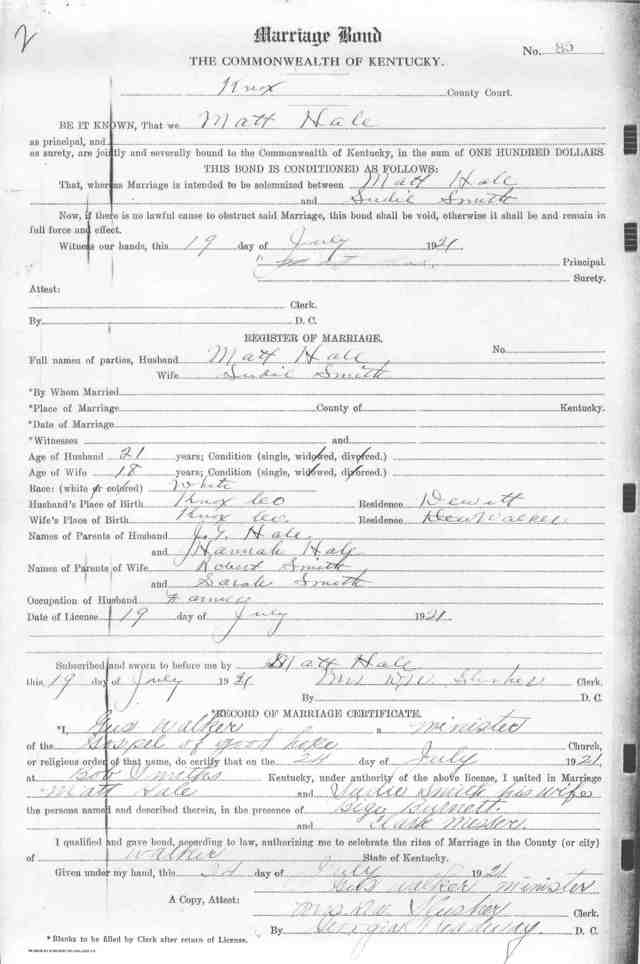 2
Marriage Bond
No. 85
THE COMMONWEALTH OF KENTUCKY.
Knox County Court.
BE IT KNOWN, That we Matt Hale
as principal, and
as surety, are jointly and severally bound to the Commonwealth of Kentucky, in the sum of ONE HUNDRED DOLLARS.
THIS BOND IS CONDITIONED AS FOLLOWS:
That, whereas Marriage is intended to be solemnized between Matt Hale
and Sudie Smith
Now, if there is no lawful cause to obstruct said Marriage, this bond shall be void, otherwise it shall be and remain in
full force and effect.
Witness our hands, this 19 day of July 1921
Principal.
Surety.
Attest:
Clerk.
By D. C.
REGISTER OF MARRIAGE.
No.
Full names of parties, Husband Matt Hale
Wife Sudie Smith
*By Whom Married
*Place of Marriage County of Kentucky.
*Date of Marriage
*Witnesses and
Age of Husband 21 years; Condition (single, widowed, divorced.)
Age of Wife 18 years; Condition (single, widowed, divorced.)
Race: (white or colored) White
Husband's Place of Birth Knox Co Residence Dewitt
Wife's Place of Birth Knox Co. Residence Walker
Names of Parents of Husband Hale
and Hannah Hale
Names of Parents of Wife Robert Smith
and Sarah Smith
Occupation of Husband Farmer
Date of License 19 day of July 1921
Subscribed and sworn to before me by Matt Hale
this 19 day of July 1921 Clerk.
By D. C.
*RECORD OF MARRIAGE CERTIFICATE.
*I, Gus Walker a minister
of the Gospel of good hope Church,
or religious order of that name, do certify that on the 24 day of July 1921.
at Bob Smiths Kentucky, under authority of the above license, I united in Marriage
Matt Hale and Sudie Smith his wife
the persons named and described therein, in the presence of Burnett
and
I qualified and gave bond, according to law, authorizing me to celebrate the rites of Marriage in the County (or city)
of Walker State of Kentucky.
Given under my hand, this 24 day of July 1921
Gus Walker minister
A Copy, Attest: Slusher Clerk.
By Georgia D. C.
*Blanks to be filled by Clerk after return of License.